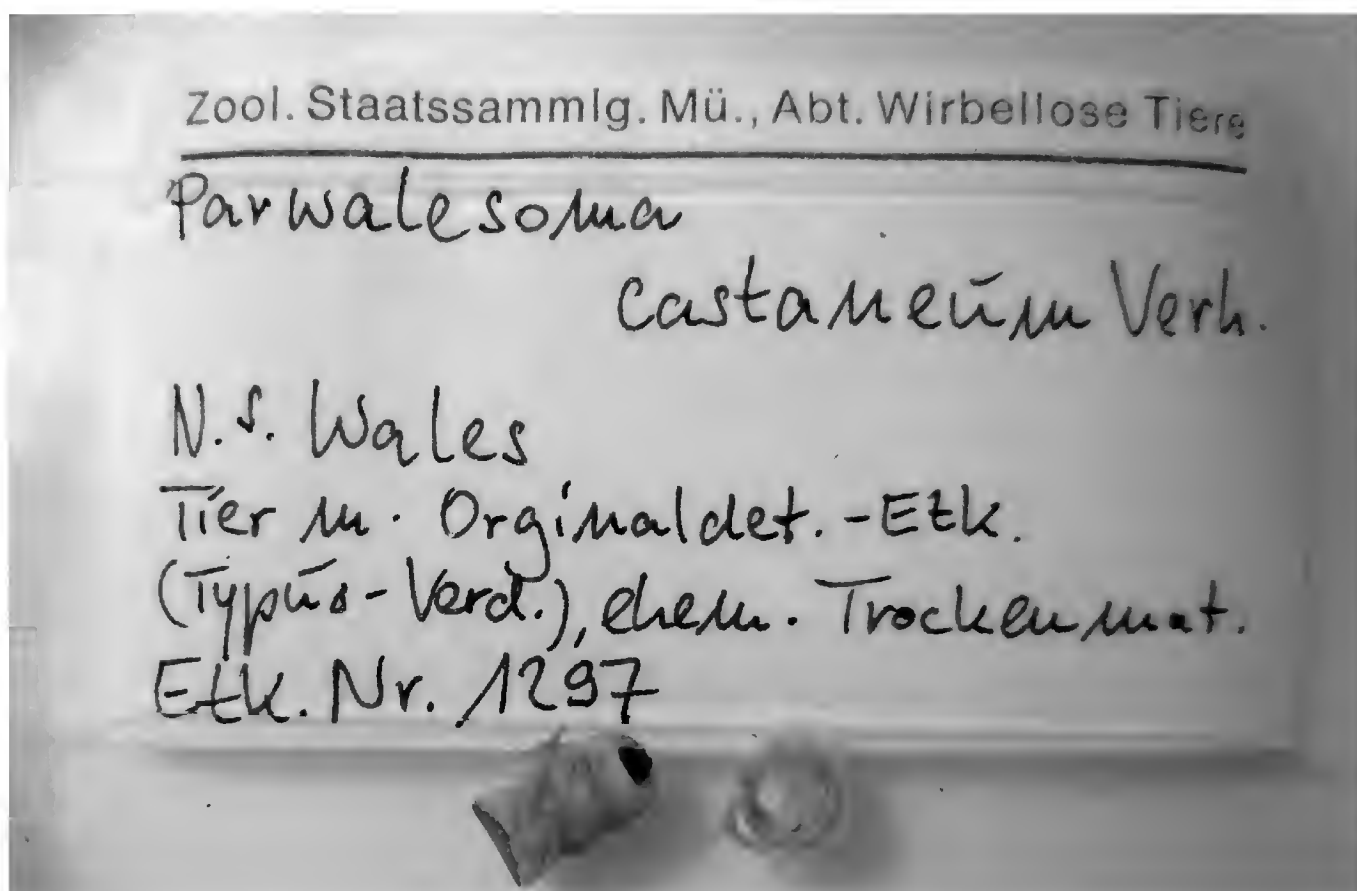 Zool. Staatssammlg. Mü., Abt. Wirbellose Tiere
Parwalesoma
castaneum Verh.
N.S. Wales
Tier m. Orginaldet.-Etk.
(Typus-Verd.), ehem. Trockenmat.
Etk. Nr. 1297